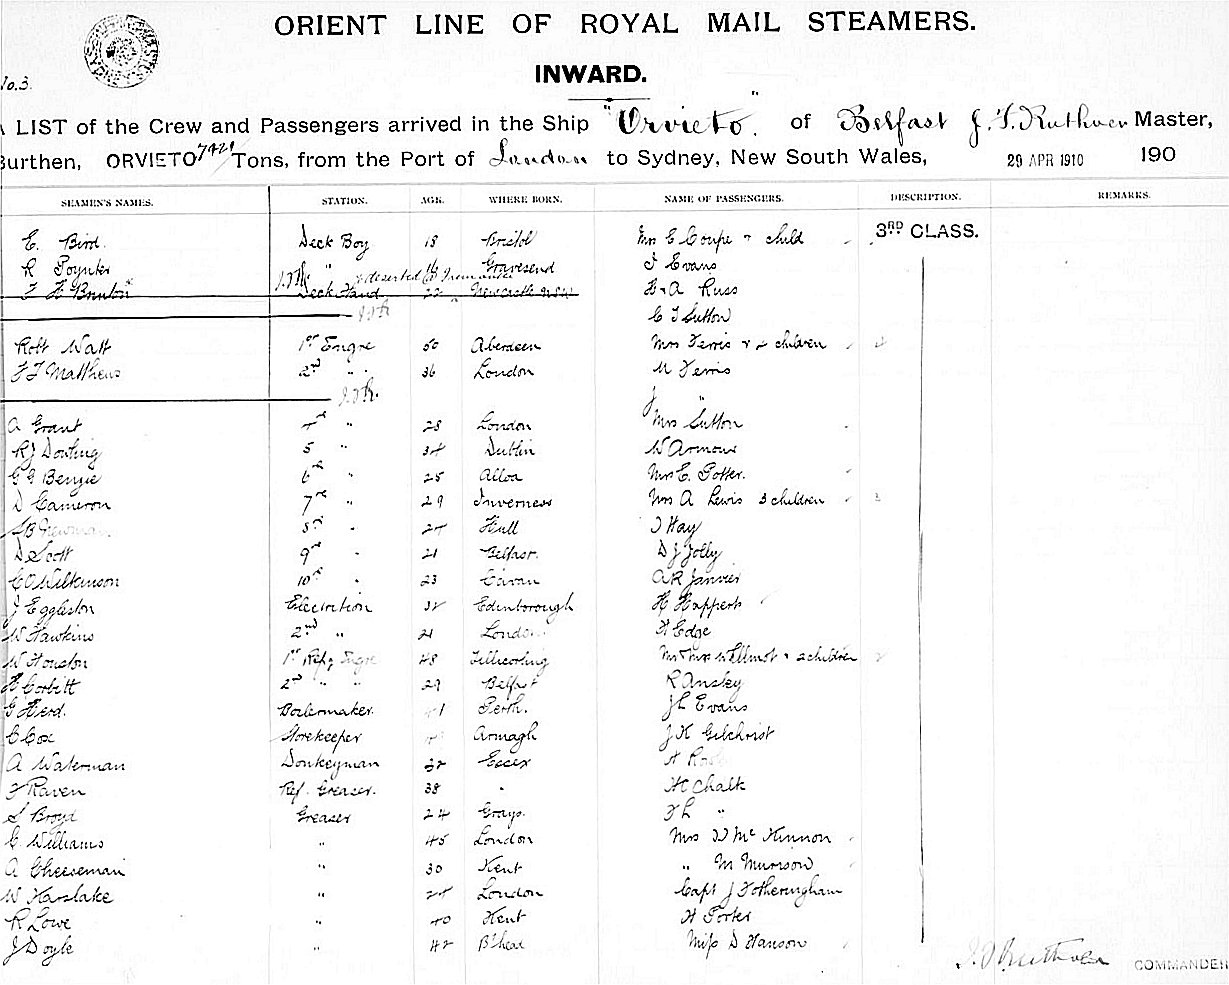 ORIENT LINE OF ROYAL MAIL STEAMERS.
No.3.
INWARD.
A LIST of the Crew and Passengers arrived in the Ship "Orvieto" of Belfast J. F. Ruthven Master,
Burthen, ORVIETO 7421 Tons, from the Port of London to Sydney, New South Wales, 29 APR 1910 190
SEAMEN'S NAMES. STATION. AGE. WHERE BORN. NAME OF PASSENGERS. DESCRIPTION. REMARKS.
E. Bird. Deck Boy 18 Bristol Mrs E Coupe + child 3RD CLASS.
R Poynter " 16 Gravesend J Evans
deserted @ Fremantle
F H Brinton Deck Hand 22 Newcastle NSW H & A Russ
C J Sutton
Robt Watt 1st Engre 50 Aberdeen Mrs Ferris + 4 children 4
F J Matthews 2nd " 36 London M Ferris
J "
A Grant 4th " 28 London Mrs Sutton
R J Dowling 5 " 34 Dublin W Armour
G G Bengie 6th " 25 Alloa Mrs E. Potter.
D Cameron 7th " 29 Inverness Mrs A Lewis 3 children 3
B Newman 8th " 27 Hull J Hay
D Scott 9th " 21 Belfast. D J Jolly
C O Wilkinson 10th " 23 Cavan A R Janvier
J Eggleston Electrition 32 Edinborough H Happerts
W Hawkins 2nd " 21 London H Edge
W Houston 1st Refg Engre 48 Mr + Mrs Willmot + 2 children 2
H Corbitt 2nd " " 29 Belfast R Ansley
G Herd. Boilermaker. Perth. J L Evans
C Cox Storekeeper Armagh J K Gilchrist
A Waterman Donkeyman 32 Essex A
F Raven Ref. Greaser. 38 " H C Chalk
S Broyd Greaser 24 Grays. F L "
C. Williams " 45 London Mrs D McKinnon
A Cheeseman " 30 Kent " M Murison
W Haslake " 27 London Capt J Fotheringham
R Lowe " 40 Kent H Porter
J Doyle " 42 B'head Miss D Hanson
J. F. Ruthven COMMANDER